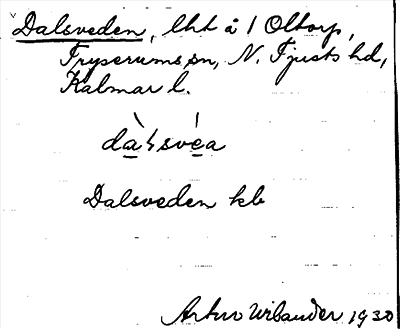 Dalsveden, lht å 1 Oltorp,
Tryserums sn, N. Tjusts hd,
Kalmar l.
dàlsvéa
Dalsveden kb
Artur Wibander 1930